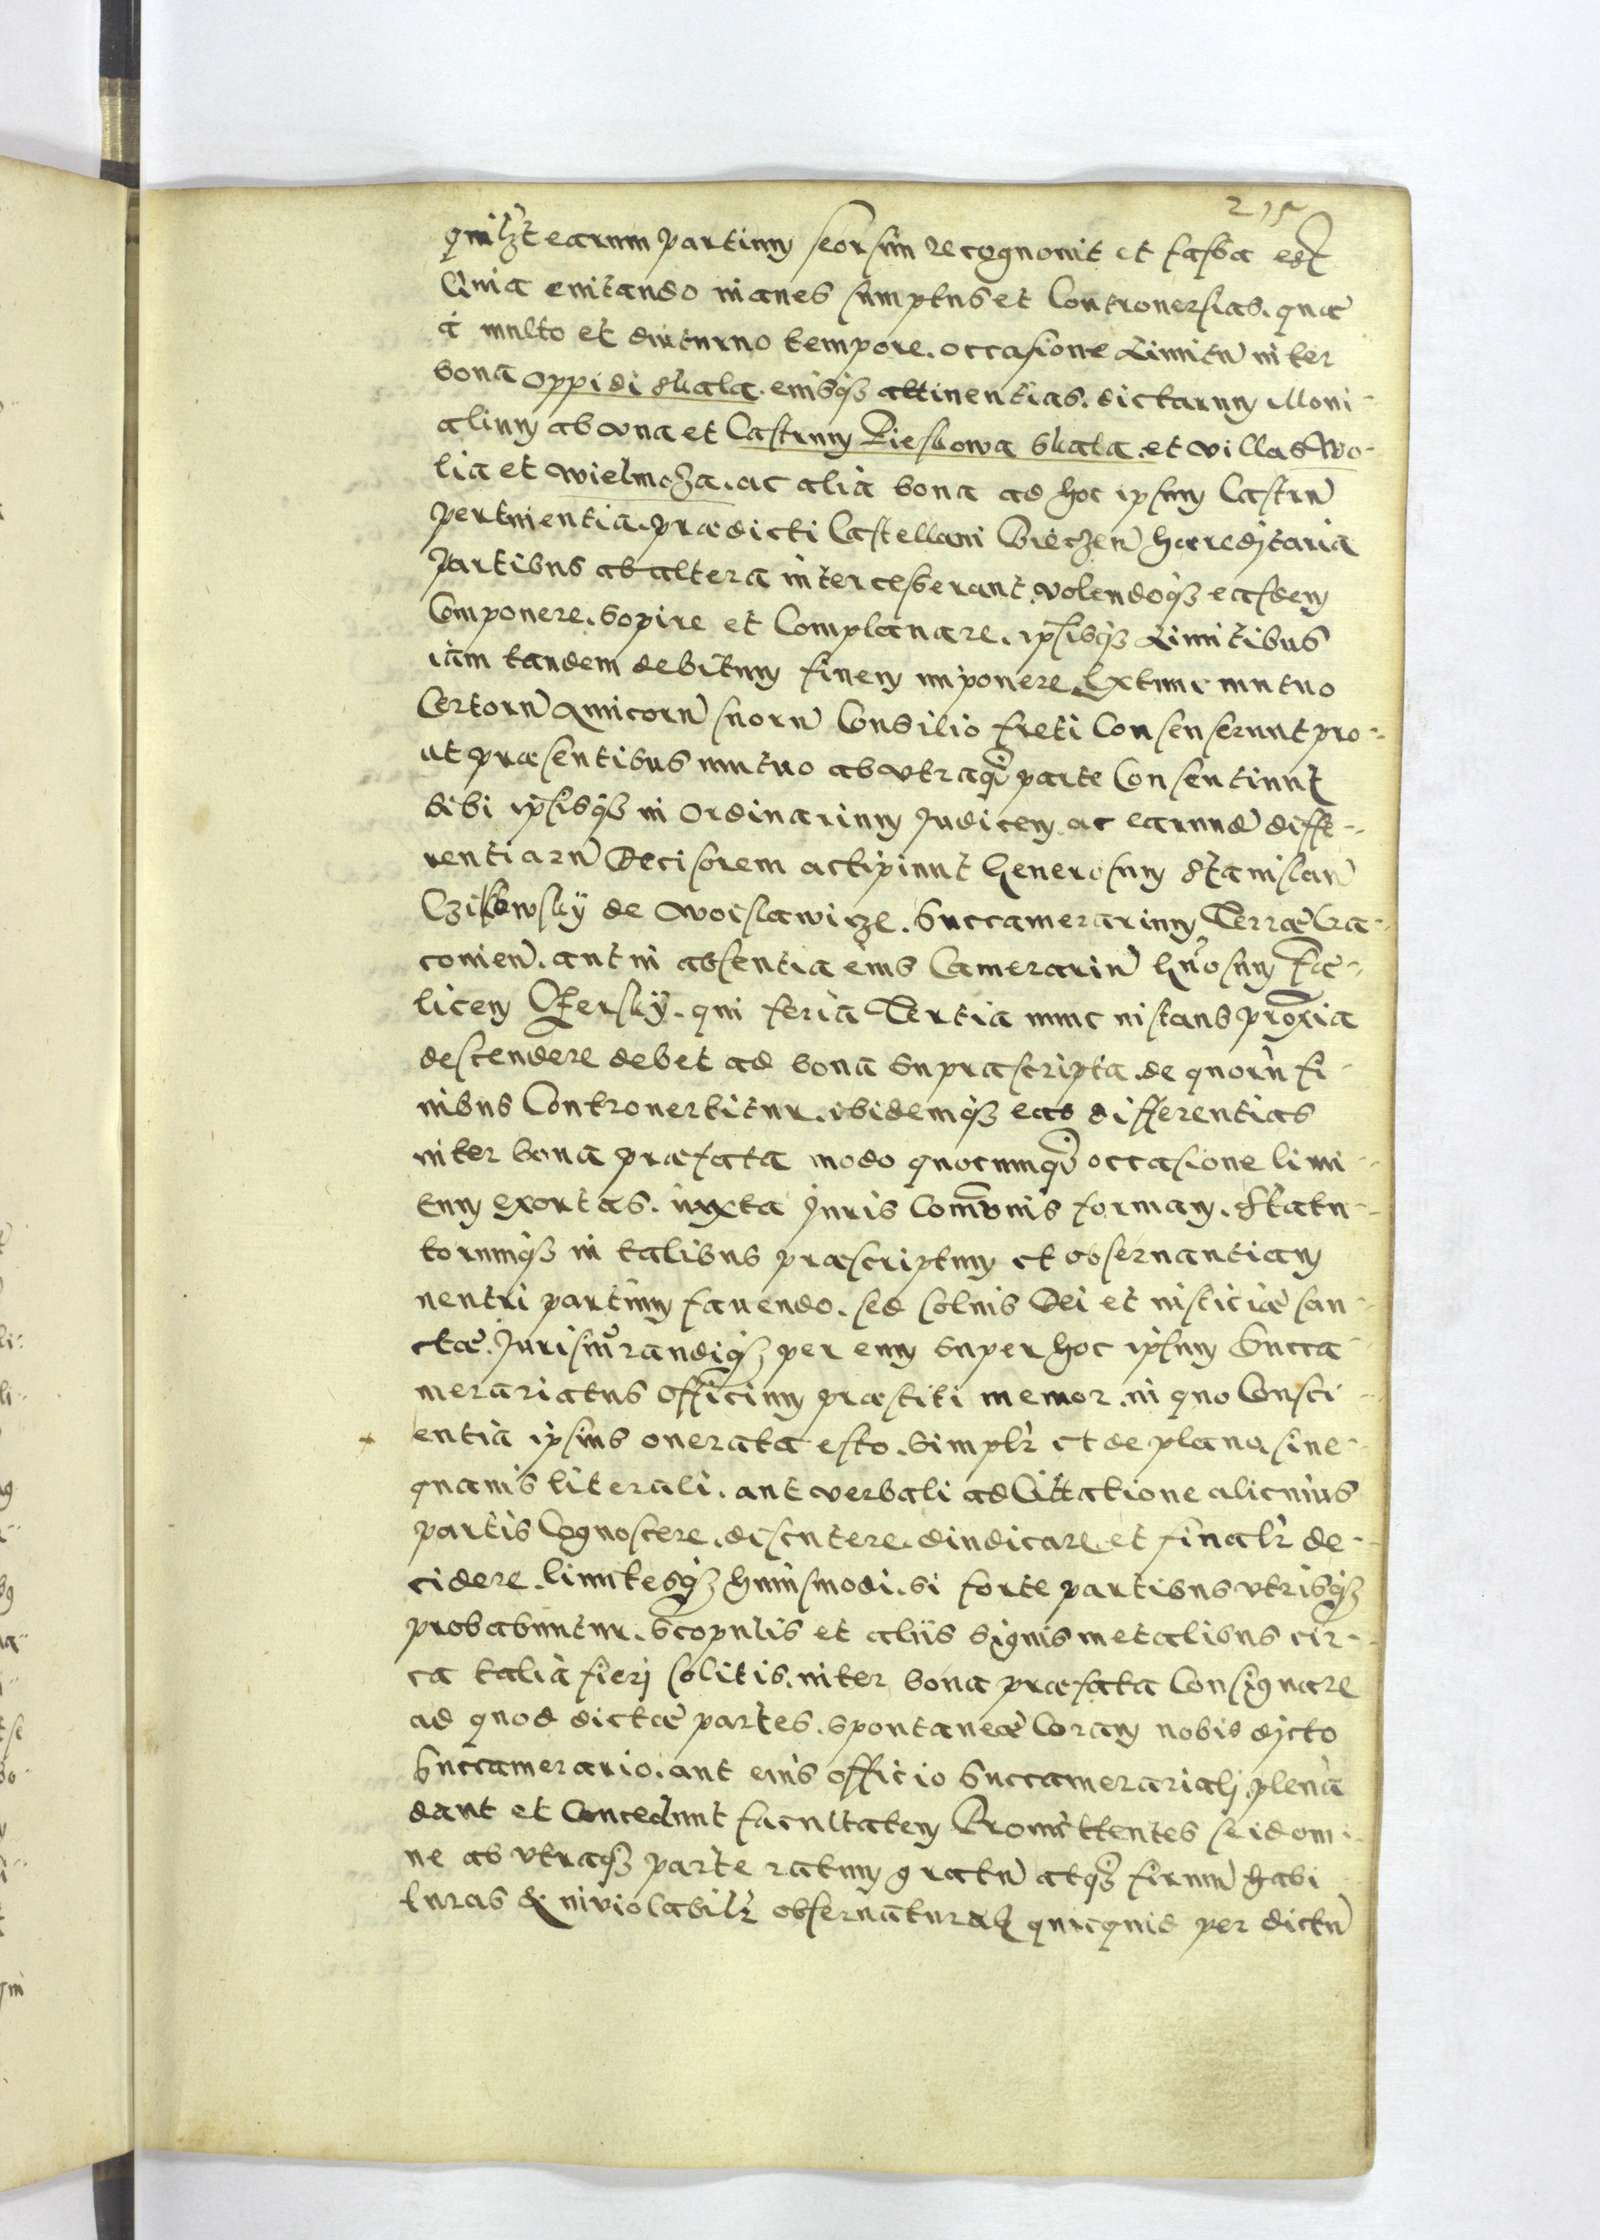 215
quilꝫt earum partium seorsim recognouit et fassa est
Quia euitando inanes sumptus et Controuersias. quæ
à multo et diuturno tempore. occasione Limitũ inter
bona oppidi Skala. eiusqꝫ attinentias. dictarum Moni-
alium ab vna et Castrum Pieskowa Skala. et villas Wo-
lia et Wielmoza. ac alia bona ad hoc ipsum Castrũ
pertinentia. prædicti Castellani Bieczeñ hæreditaria
Partibus ab altera intercesserant, volendoqꝫ easdem
Componere. sopire et Complanare. ipsisqꝫ Limitibus
iam tandem debitum finem imponere. Extunc mutuo
Certorũ Amicorũ suorũ Consilio freti Consenserunt pro-
ut præsentibus mutuo ab vtraqꝫ parte Consentiunt
Sibi ipsisqꝫ in ordinarium Judicem. ac earundẽ diffe-
rentiarũ Decisorem accipiunt Generosum Stanislaũ
Czikowsky de Woislawicze. Succamerarium Terræ Cra-
couieñ. aut in absentia eius Camerariũ Gñosum Fæ-
licem Czersky. qui feria Tertia nunc instans proxia
descendere debet ad bona supra scripta. de quorũ fi-
nibus Controuertitur. ibidemqꝫ eas differentias
inter bona præfata modo quocunqꝫ occasione limi-
tum exortas. iuxta Juris Com̃unis formam. Statu-
torumqꝫ in talibus præscriptum et obseruantiam
neutri partium fauendo. sed solius Dei et iusticiæ san-
ctæ. Jurisiurandiqꝫ per eum super hoc ipsum Succa-
merariatus Officium præstiti memor. in quo Consci-
entia ipsius onerata esto. Simplr̃ et de plano, sine
quauis literali. aut verbali adCittatione alicuius
partis Cognoscere. discutere. diiudicare. et finalr̃ de-
cidere. limitesqꝫ huiusmodi. si forte partibus vtrisqꝫ
probabuntur. Scopulis et aliis signis metalibus cir-
ca talia fieri solitis. inter bona præfata Consignare
ad quod dictæ partes. spontaneæ Coram nobis dicto
Succamerario. aut eius officio Succamerariali plenã
dant et Concedunt facultatem Promittentes se id om-
ne ab vtraqꝫ parte ratum gratũ atqꝫ firmũ habi-
turas & inviolabilr̃ obseruaturas quicquid per dictũ